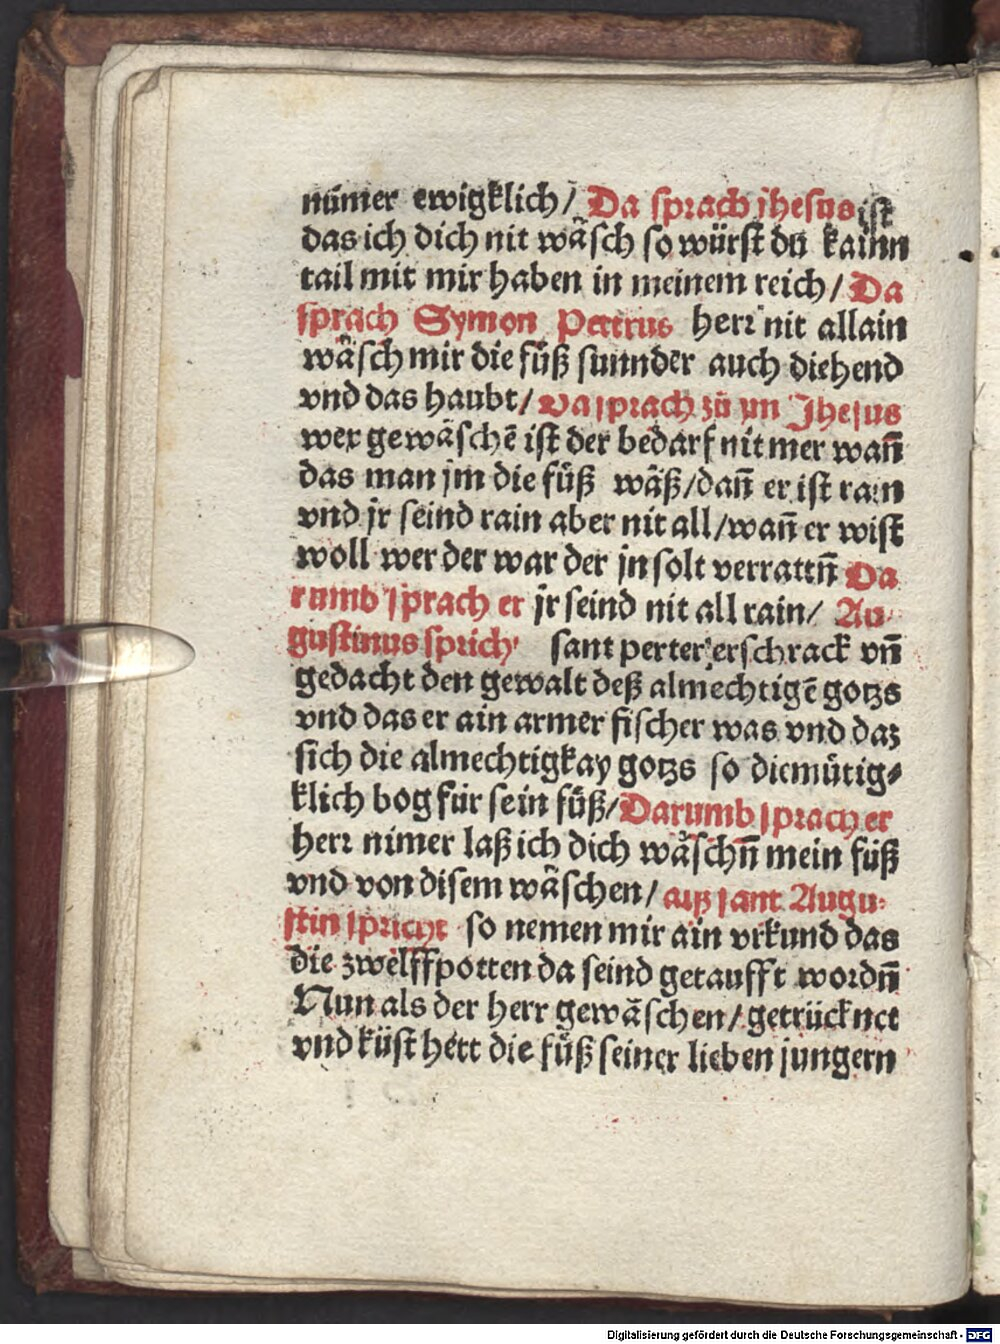 nümer ewigklich/ Da sprach jhesus ist
das ich dich nit wäsch so würst du kainn
tail mit mir haben in meinem reich/ Da
sprach Symon Petrus herr nit allain
wäsch mir die füß sunnder auch die hend
vnd das haubt/ Da sprach zů im Jhesus
wer gewäschē ist der bedarf nit mer wañ
das man jm die füß wäß/dañ er ist rain
vnd jr seind rain aber nit all/wañ er wist
woll wer der war der jn solt verrattñ Da
rumb sprach er jr seind nit all rain/ Au-
gustinus sprich sant perter erschrack vñ
gedacht den gewalt deß almechtigē gotzs
vnd das er ain armer fischer was vnd daz
sich die almechtigkay gotzs so diemütig-
klich bog für sein füß/Darumb sprach er
herr nimer laß ich dich wäschñ mein füß
vnd von disem wäschen/ alß sant Augu-
stin spricht so nemen mir ain vrkund das
die zwelffpotten da seind getaufft wordñ
Nun als der herr gewäschen/getrücknet
vnd küst hett die füß seiner lieben jungern
Digitalisierung gefördert durch die Deutsche Forschungsgemeinschaft - DFG